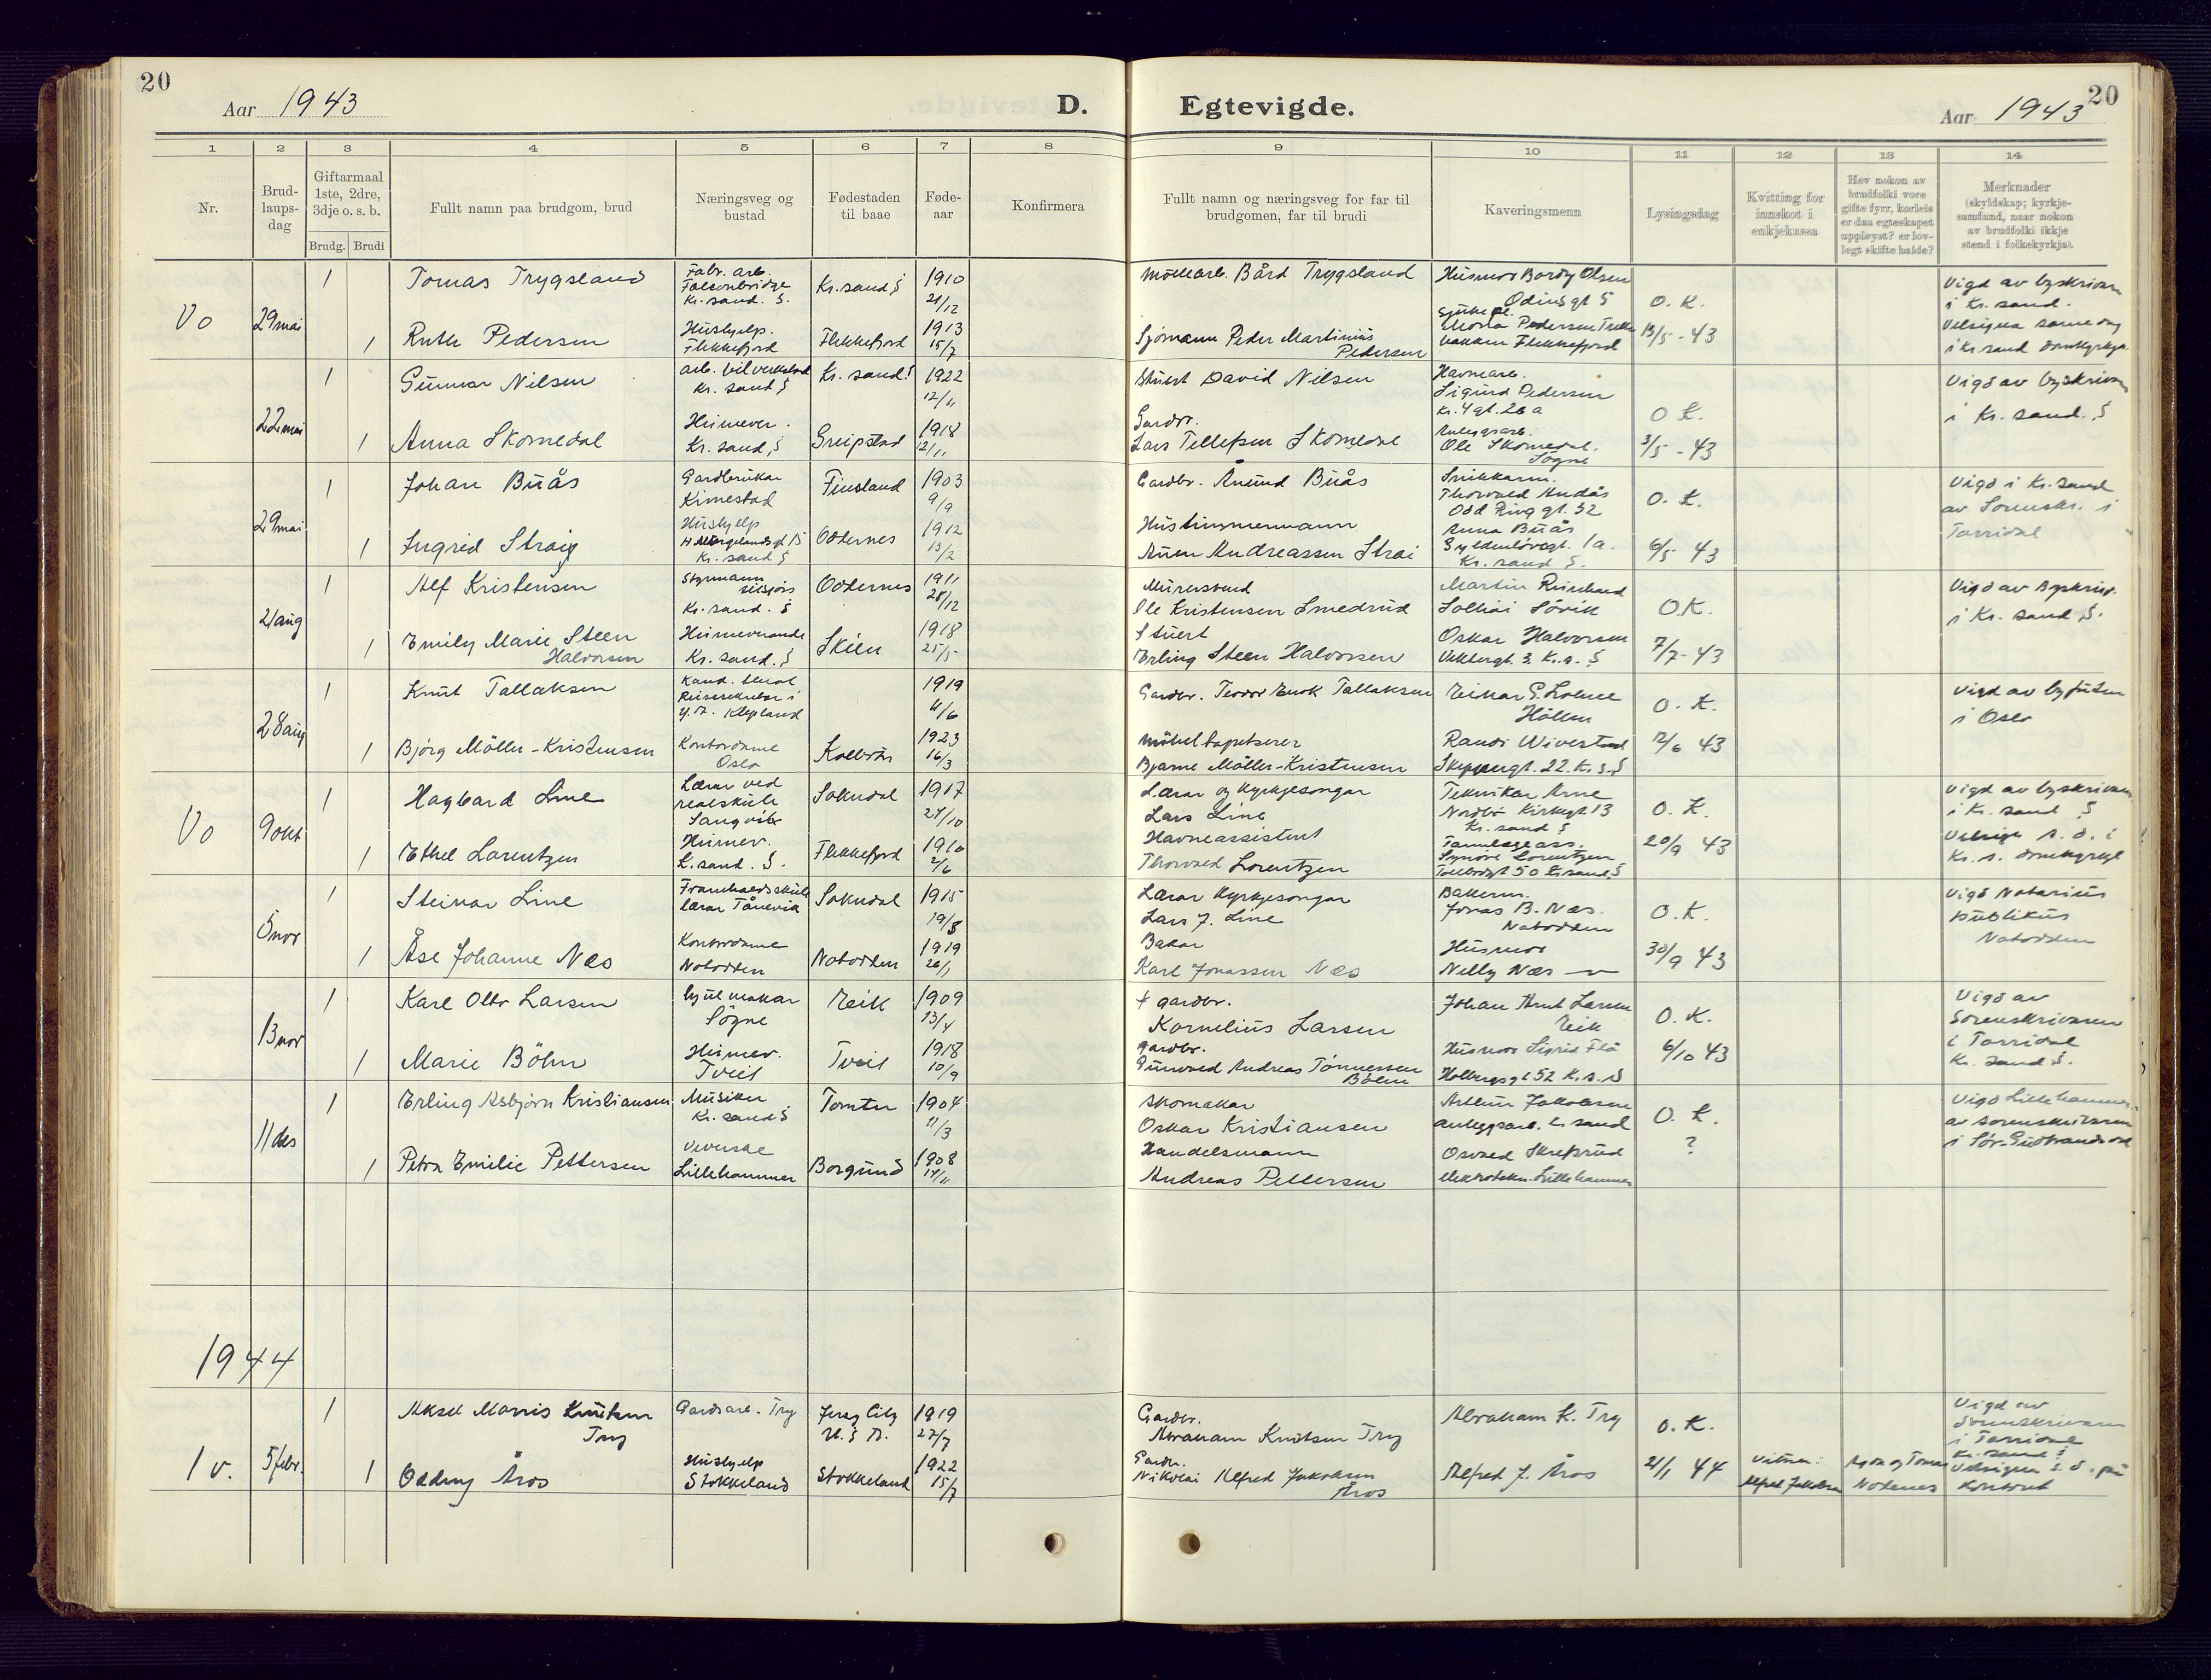 20
Aar 1943
D. Egtevigde.
Aar 1943
20
1 2 3 4 5 6 7 8 9 10 11 12 13 14
Nr.
Brud-
laups-
dag
Giftarmaal
1ste, 2dre,
3dje o. s. b.
Brudg. Brudi
Fullt namn paa brudgom, brud
Næringsveg og
bustad
Fødestaden
til baae
Føde-
aar
Konfirmera
Fullt namn og næringsveg for far til
brudgomen, far til brudi
Kaveringsmenn
Lysingsdag
Kvitting for
innskot i
enkjekassa
Hev nokon av
brudfolki vore
gifte fyrr, korleis
er daa egteskapet
uppløyst? er lov-
legt skifte halde?
Merknader
(skyldskap; kyrkje-
samfund, naar nokon
av brudfolki ikkje
stend i folkekyrkja).
Vo 29 mai
1 Tomas Trygsland
Fabr. arb.
Falconbridge
Kr. sand. S.
Kr. sand S
1910
21/12
Møllearb. Bård Trygsland
Husmor Bordy Olsen
Odinsgt 5
O. K.
Vigd av byskrivaren
i Kr. sand.
1 Ruth Pedersen
Hushjelp.
Flekkefjord
Flekkefjord
1913
15/7
Sjømann Peder Martinius
Pedersen
Pedersen
Flekkefjord
13/5 - 43
Velsigna same dag
i Kr. sand domkyrkja
22 mai
1 Gunnar Nilsen
arb. bilverkstad
Kr. sand S
Kr. sand S
1922
12/11
Stuert David Nilsen
Havnearb.
Sigurd Pedersen
Kr. 4 gt. 26 a
O K.
Vigd av byskrivaren
i Kr. sand. S
1 Anna Skomedal
Heimever.
Kr. sand S
Greipstad
1918
12/11
Gardbr.
Lars Tellefsen Skomedal
Anleggsarb.
Ole Skomedal.
Søgne
3/5 - 43
29 mai
1 Johan Buås
Gardbrukar
Kimestad
Finsland
1903
9/9
Gardbr. Ånund Buås
Snikkarm.
Thorvald Andås
Odd Ring gt. 32
O. K.
Vigd i Kr. sand
av Sorenskr. i
Torridal
1 Ingrid Straig
Hushjelp
H Wergelandsgt 15
Kr. sand S
Oddernes
1912
13/2
Hustimmermann
Aun Andreassen Strai
Anna Buås
Gyldenløvegt. 1a.
Kr. sand S.
6/5 43
21 aug
1 Alf Kristensen
Styrmann
utsjøs
Kr. sand. S
Oddernes
1911
28/12
Murersvend
Ole Kristensen Smedrud
Martin Reinhard
Solhei Søvik
O.K.
Vigd av Byskriv.
i Kr. sand S.
1 Emily Marie Steen
Halvorsen
Heimeverande
Kr. sand. S
Skien
1918
25/5
Stuert
Erling Steen Halvorsen
Oskar Halvorsen
3. K. s. S
7/7 - 43
28 aug
1 Knut Tallaksen
Kand. teol
Reisesekretær i
Klepland
1919
4/6
Gardbr. Teodor Enok Tallaksen
Einar G.
Höllen
O. K.
Vigd av byfuten
i Oslo
1 Bjørg Möller-Kristensen
Kontordame
Oslo
Kolbotn
1923
16/3
Möbeltapetserer
Bjarne Möller-Kristensen
Randi Wiverstad
Skippergt. 22. K. s. S
12/6 43
Vo 9 okt
1 Hagbard Line
Lærar ved
realskule
Sangvik
Sokndal
1917
27/10
Lærar og kyrkjesongar
Lars Line
Teknikar Arne
Nordbø Kirkegt 13
Kr. sand S
O. K.
Vigd av byskrivaren
i Kr. sand S
1 Ethel Lorentzen
Heimev.
K. sand. S.
Flekkefjord
1910
2/6
Havneassistent
Thorvald Lorentzen
Tannlegeass.
Synøve Lorentzen
Tollbodgt 50 Kr. sand S
20/9 43
Velsigna s. d. i
Kr. s. domkyrkje
5 nov
1 Steinar Line
Framhaldsskule
lærar Tånevik
Sokndal
1915
19/8
Lærar kyrkjesongar
Lars J. Line
Bakerm.
Jonas B. Næs.
Notodden
O. K.
Vigd Notarius
publikus
Notodden
1 Åse Johanne Næs
Kontordame
Notodden
Notodden
1919
26/1
Bakar
Karl Jonassen Næs
Husmor
Nelly Næs
30/9 43
13 nov
1 Karl Otto Larsen
hjulmakar
Søgne
Eik
1909
13/4
+ gardbr.
Kornelius Larsen
Johan Arnt Larsen
Eik
O. K.
Vigd av
Sorenskrivaren
i Torridal
Kr. sand S.
1 Marie Böhn
Heimev.
Tveit
Tveit
1918
10/9
gardbr.
Gunvald Andreas Tønnessen
Böhn
Husmor Sigrid Flå
Holbergsgt 52 K. s. S
6/10 43
11 des
1 Erling Asbjørn Kristiansen
Musiker
Kr. sand S
Tomter
1904
11/3
Skomakar
Oskar Kristiansen
Arthur Jakobsen
anleggsarb. Kr sand
O. K.
Vigd Lillehammer
av sorenskrivaren
i Sør-Gudbrandsdal
1 Petra Emilie Pettersen
Veverske
Lillehammer
Borgund
1908
14/11
Handelsmann
Andreas Pettersen
Osvald Skrefsrud
elektrotekn. Lillehammer
?
1944
1 v. 5 febr.
1 Aksel Morris Knutsen
Try
Gardsarb. Try
Jersey City
U. S A.
1919
27/7
Gardbr.
Abraham Knutsen Try
Abraham K. Try
O. K.
Vigd av
Sorenskrivaren
i Torridal
Kr. sand S
1 Oddny Åros
Hushjelp
Stokkeland
Stokkeland
1922
15/7
Gardbr.
Nikolai Alfred Jakobsen
Åros
Alfred J. Åros
21/1 44
Vitner:
Alfred Jakobsen
og Tomas
Nodenes
Velsigna s. d. på
Kontoret